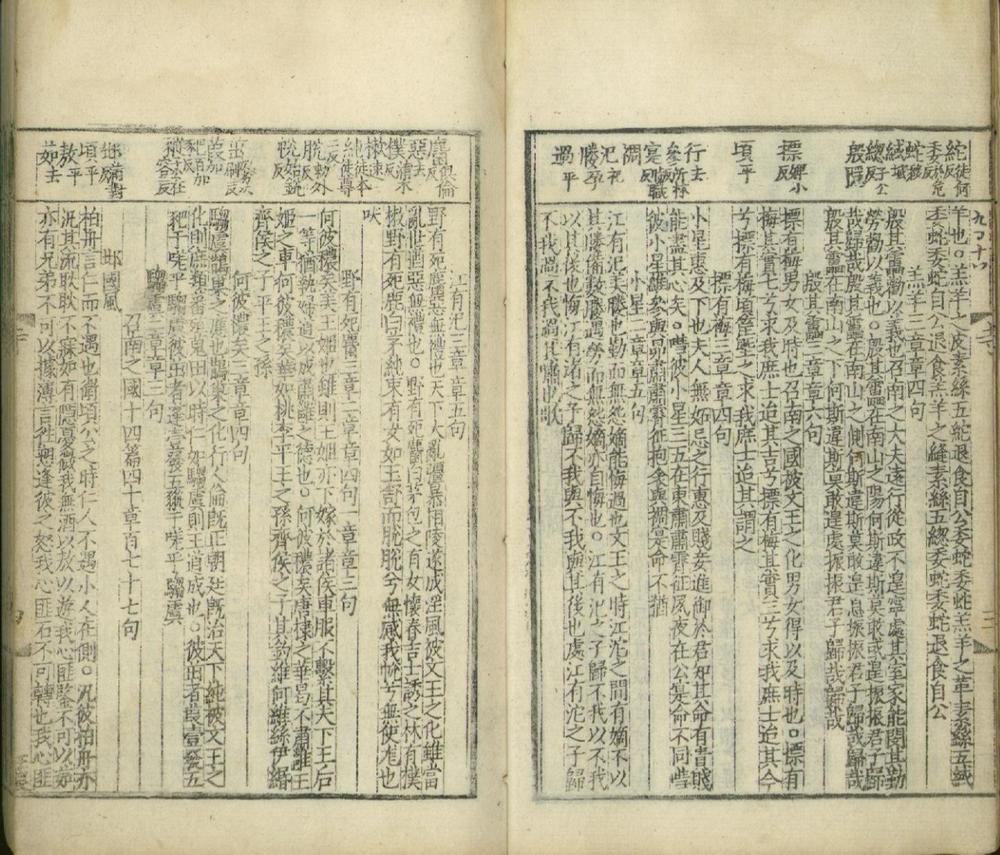 紽徒何
委於危
蛇移
緎域
總子公反
殷隱
摽婢小反
頃平
行去
寔職反
裯
汜祀
媵孕
過平
羊也○羔羊之皮素絲五紽退食自公委蛇委蛇羔羊之革素絲五緎
委蛇委蛇自公退食羔羊之縫素絲五總委蛇委蛇退食自公
羔羊三章章四句
殷其靁勸以義也召南之大夫遠行從政不遑寧處其室家能閔其勤
勞勸以義也○殷其靁在南山之陽何斯違斯莫敢或遑振振君子歸
哉歸哉殷其靁在南山之側何斯違斯莫敢遑息振振君子歸哉歸哉
殷其靁在南山之下何斯違斯莫敢遑處振振君子歸哉歸哉
殷其靁三章章六句
摽有梅男女及時也召南之國被文王之化男女得以及時也○摽有
梅其實七兮求我庶士迨其吉兮摽有梅其實三兮求我庶士迨其今
兮摽有梅頃筐塈之求我庶士迨其謂之
摽有梅三章章四句
小星惠及下也夫人無妬忌之行惠及賤妾進御於君知其命有貴賤
能盡其心矣○嘒彼小星三五在東肅肅宵征夙夜在公寔命不同嘒
彼小星維參與昴肅肅宵征抱衾與裯寔命不猶
小星二章章五句
江有汜美媵也勤而無怨嫡能悔過也文王之時江沱之間有嫡不以
其媵備數媵遇勞而無怨嫡亦自悔也○江有汜之子歸不我以不我
以其後也悔江有渚之子歸不我與不我與其後也處江有沱之子歸
不我過不我過其嘯也歌
麕俱倫反
惡去
樸蒲木
樕速
純徒本
帨始銳
頃平
敖平
茹去
江有汜三章章五句
野有死麕惡無禮也天下大亂彊暴相陵遂成淫風被文王之化雖當
亂世猶惡無禮也○野有死麕白茅包之有女懷春吉士誘之林有樸
樕野有死鹿白茅純束有女如玉舒而脫脫兮無感我帨兮無使尨也
吠
野有死麕三章二章章四句一章章三句
何彼襛矣美王姬也雖則王姬亦下嫁於諸侯車服不繫其夫下王后一
等猶執婦道以成肅雝之德也○何彼襛矣唐棣之華曷不肅雝王
姬之車何彼襛矣華如桃李平王之孫齊侯之子其釣維何維絲伊緡
齊侯之子平王之孫
何彼襛矣三章章四句
騶虞鵲巢之應也鵲巢之化行人倫既正朝廷既治天下純被文王之
化則庶類蕃殖蒐田以時仁如騶虞則王道成也○彼茁者葭壹發五
豝于嗟乎騶虞彼茁者蓬壹發五豵于嗟乎騶虞
騶虞二章章三句
召南之國十四篇四十章百七十七句
邶國風
柏舟言仁而不遇也衛頃公之時仁人不遇小人在側○汎彼柏舟亦
汎其流耿耿不寐如有隱憂微我無酒以敖以遊我心匪鑒不可以茹
亦有兄弟不可以據薄言往愬逢彼之怒我心匪石不可轉也我心匪